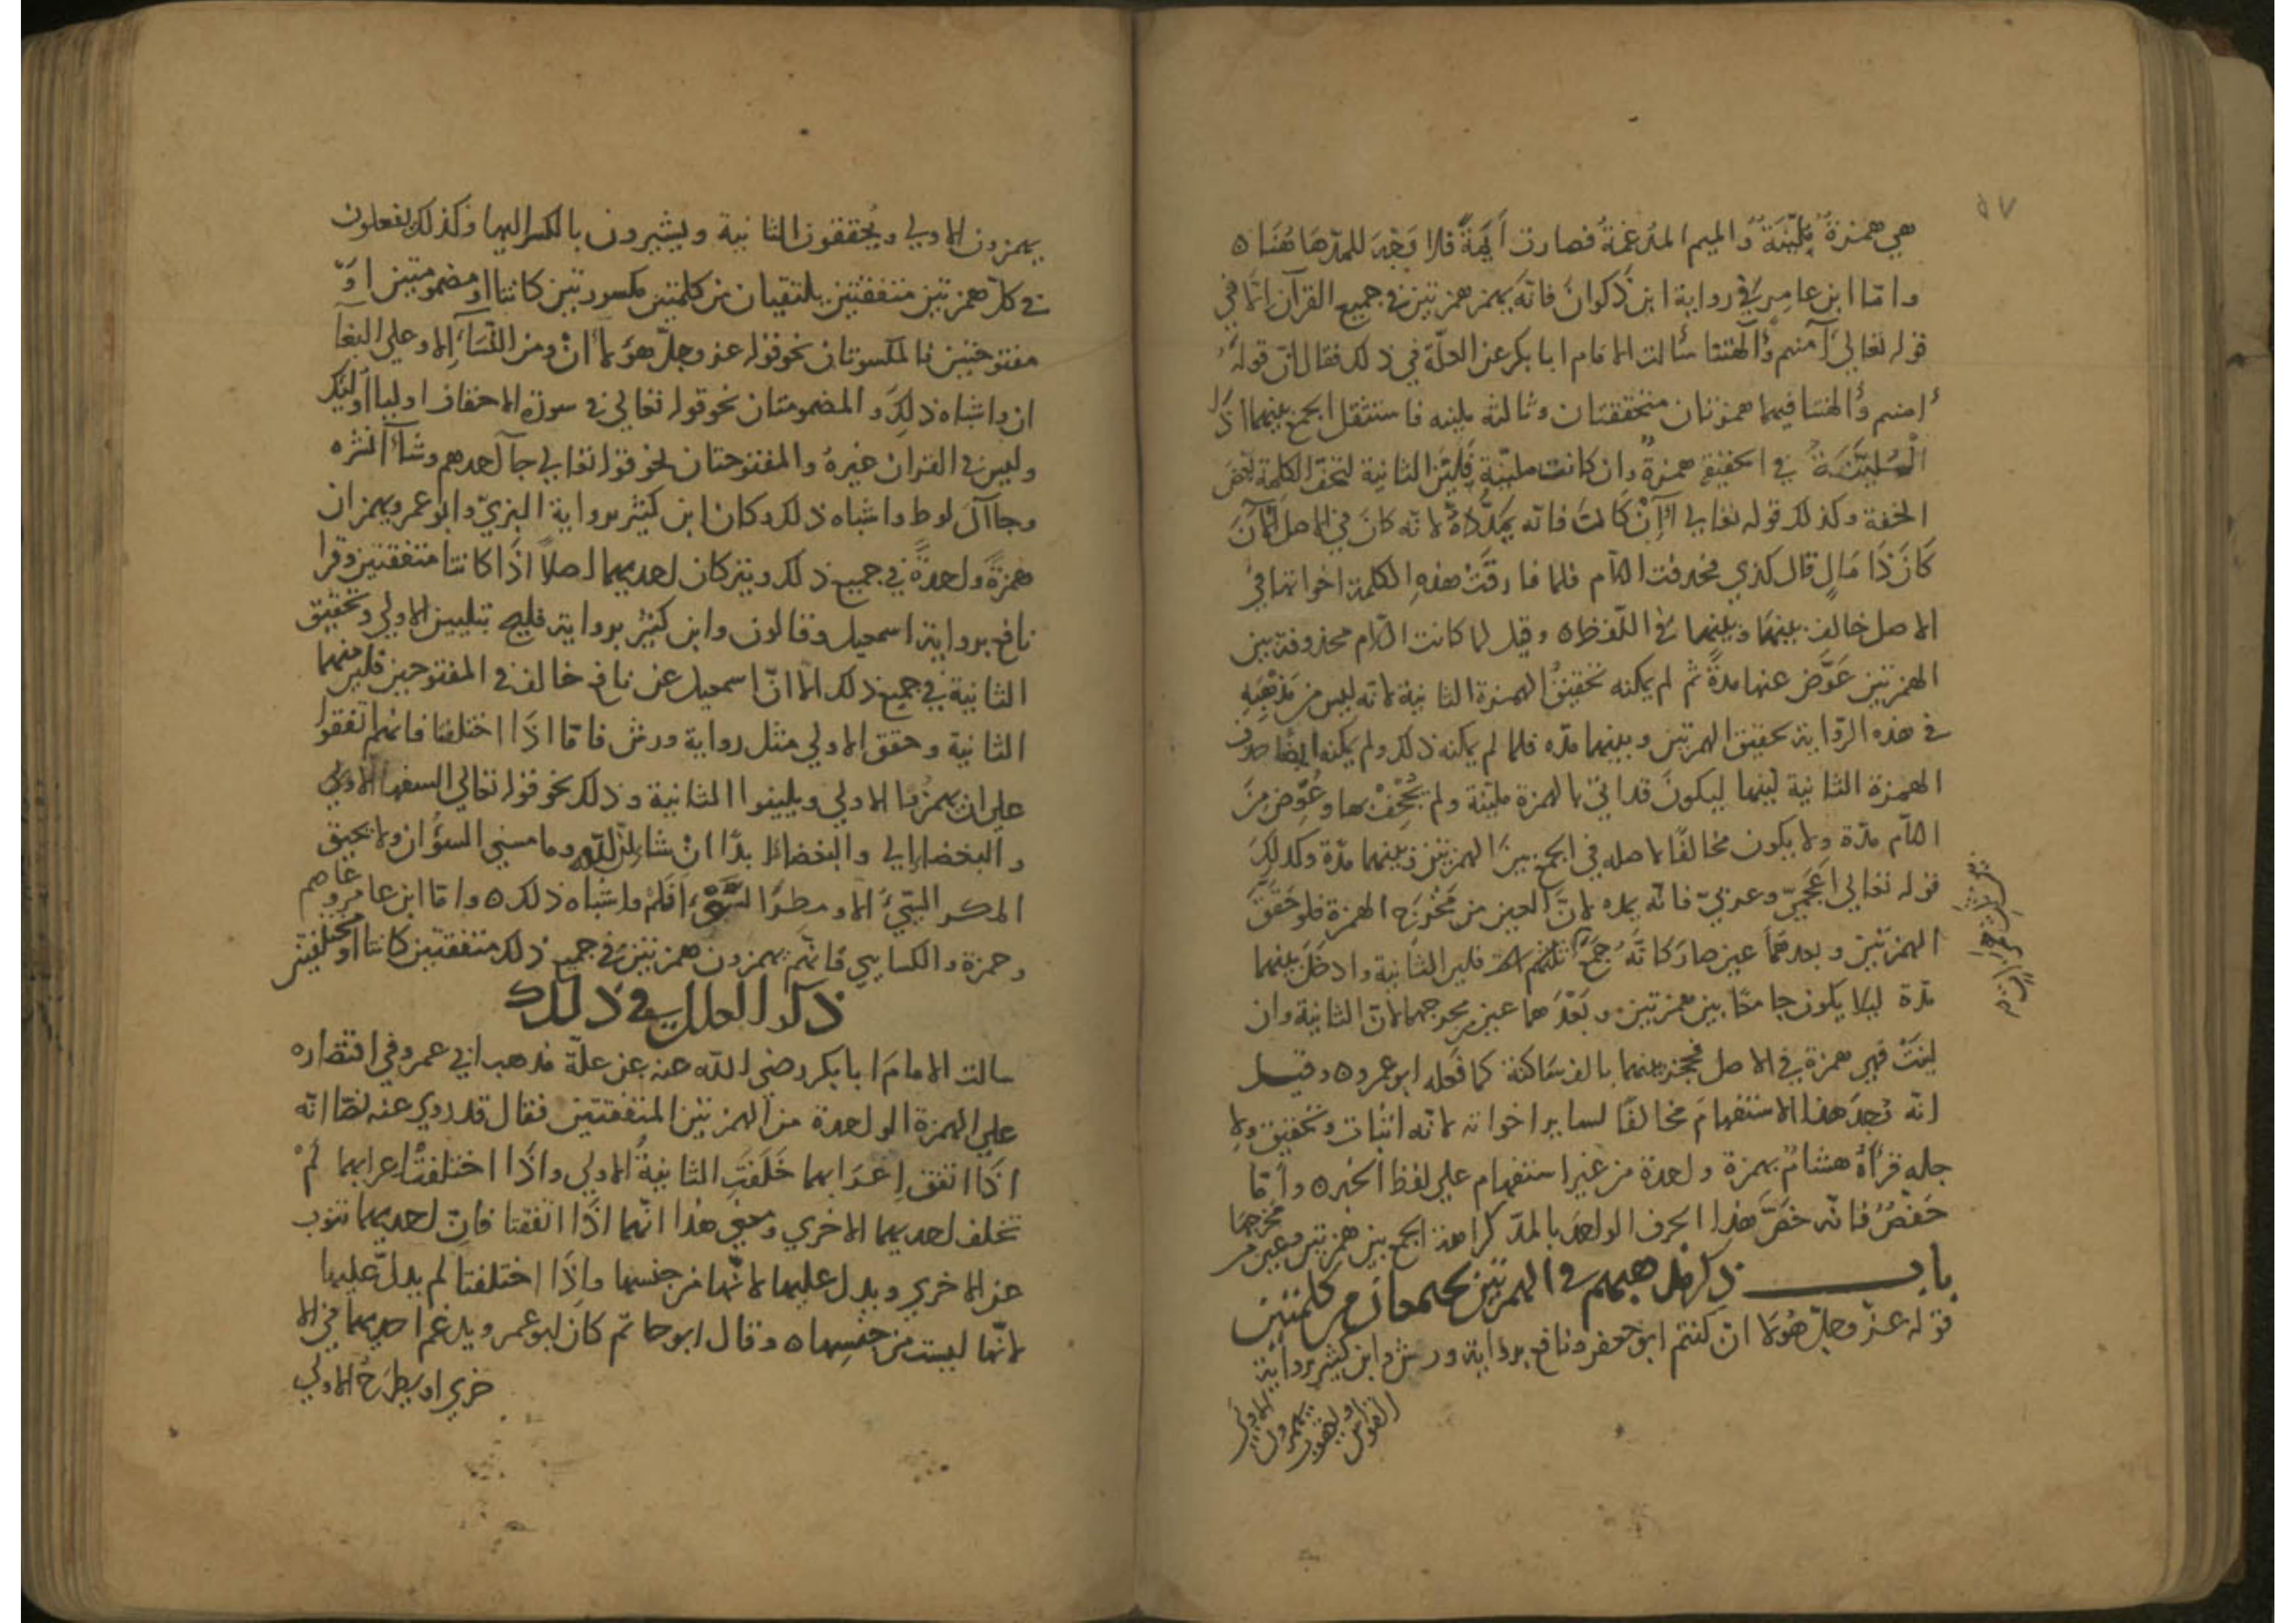 ٥٧
هي همزةٌ مليّنَةٌ والميم المدغمةُ فصارت أيمةً فلا وَجْهَ للمدّ هَا هُنَا ه
وامّا ابن عامر في رواية ابن ذَكوانَ فانّه يهمز همزتين في جميع القرآن إلّا في
قوله تعالى أآمنتم وأآلهتنا سألت الامام ابا بكر عن العلّة في ذلك فقال لانّ قولهُ
أامنتم وأالهتنا فيهما همزتان متحققتان وثالثة ملينه فاستثقل الجمع بينهما اذ
المُليّنَةُ في الحقيقة همزةٌ وان كانت مليّنة فليّن الثانية لتخفّ الكلمة بعضَ
الخفة وكذلك قوله تعالى أأن كانَ فانّه يمدّ لانّه كانَ في الاصل أَلِأَنْ
كَانَ ذَا مَالٍ قال كذي فحذفت اللام فلما فارقَتْ هذهِ الكلمة اخواتها في
الاصل خالف بينهَا وبينهما في اللّفظ ه وقيل لما كانت اللام محذوفة بين
الهمزتين عَوَّض عنها مدةً ثم لم يمكنه تحقيقُ الهمزة الثانية لانّه ليس من مَذْهَبِهِ
في هذه الرّواية تحقيق الهمزتين وبينهما مدّه فلما لم يمكنه ذلك ولم يمكنه ايضًا حذف
الهمزة الثانية ليّنها ليكونَ قد اتى بالهمزة مليّنة ولم يُجْحِفْ بها وعُوّض منَ
اللّام مدّة ولا يكون مخالفًا لاصله في الجمع بينَ الهمزتين وبينهما مدّة وكذلكَ
قوله تعالى أعجميّ وعربيّ فانّه يمده لانَّ العين من مَخْرَج الهمزة فلو حَقَّقَ
الهمزتين وبعدهمَا عين صارَ كانّهُ جمَعَ ثلث فليّن الثانية وادخَلَ بينهما
مدّة ليلا يكون جامعًا بين همزتين وبَعْدَهما عين من مخرجهما لانّ الثانية وان
ليّنَتْ فهي همزة في الاصل فحجز بينهما بالف سَاكنة كما فَعَله ابو عمرو ه وقيل
انّه وجدَ هذا الاستفهامَ مخالفًا لساير اخواته لانّه اثبات وتحقيق ولا
جله قرأهُ هشامٌ بهمزة واحدة من غير استفهام على لفظ الخبر ه وأمّا
حَفْصٌ فانّه خَصَّ هذا الحرف الواحد بالمدّ كراهة الجمع بين همزتين وعين من مخرجهما
باب ذكر مذهبهم في الهمزتين تجتمعان من كلمتين
قوله عزّ وجلّ هؤلا ان كنتم ابو جعفر ونافع برواية ورش وابن كثير برواية
القواس ويعقوب يهمزون الاولى
يهمزون الاولى ويُحققون الثانية ويشيرون بالكسر اليها وكذلك يفعلون
في كلّ همزتين متفقتين يلتقيان من كلمتين مكسورتين كانتا او مضمومتين اوْ
مفتوحتين فالمكسورتان نحو قوله عز وجلّ هؤلاءِ انْ ومن النّسآءِ إلا وعلى البغآ
ان واشباه ذلكَ والمضمومتان نحو قوله تعالى في سورة الاحقاف اوليا أوليك
وليس في القران غيرهُ والمفتوحتان نحو قوله تعالى جآ احدهم وشآ أنشره
وجا آلَ لوط واشباه ذلك وكان ابن كثير برواية البزيّ وابو عمرو يهمزان
همزةً واحدةً في جميع ذلك ويتركان احديهما اصلاً اذَا كانتا متفقتين وقرا
نافع برواية اسمعيل وقالون وابن كثير برواية فليح بتليين الاولى وتحقيق
الثانية في جميع ذلك الّا انّ اسمعيل عن نافع خالف في المفتوحتين فليّن منهما
الثانية وحقق الاولى مثل رواية ورش فامّا اذَا اختلفتا فانّهم اتّفقوا
على ان يهمزُوا الاولى ويليّنوا الثانية وذلك نحو قوله تعالى السفها الا ولكن
والبغضا إلى والبغضا ابدًا انْ شا الله وما مسني السوُٓ ان ولا يحيق
المكر السّيّئُ الا ومطرَ السَّوْءِ افلمْ واشباه ذلك ه وامّا ابن عامر وعاصم
وحمزة والكسايي فانّهم يهمزون همزتين في جميع ذلك متفقتين كانتا او مختلفتين
ذكر العلل في ذلك
سالت الامامَ ابا بكر رضي الله عنه عن علّة مذهب ابي عمرو في اقتصاره
على الهمزة الواحدة من الهمزتين المتفقتين فقال قد روي عنه نصّا انّه
اذَا اتفق إعرَابهما خَلَفَتِ الثانيةُ الاولى واذَا اختلفَ إعرابهما لمْ
تخلف احديهما الاخرى ومعنى هذا انّهما اذَا اتّفقتا فانّ احديهما تنوب
عن الاخرى ويدل عليها لانّها من جنسها وإذَا اختلفتا لم يدلّ عليها
لانّها ليست من جنسِها ه وقال ابو حاتم كان ابو عمرو يدغم احديهما في الا
خرى او يطرَحُ الاولى